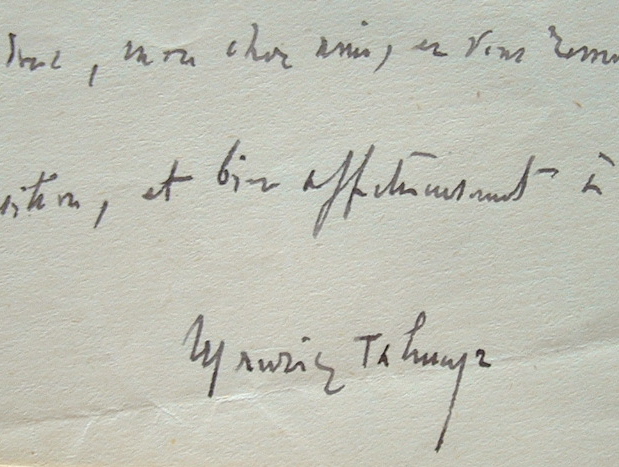 , mon cher ami, en vous
sition, et bien affectueusement à
Maurice Talmeyr